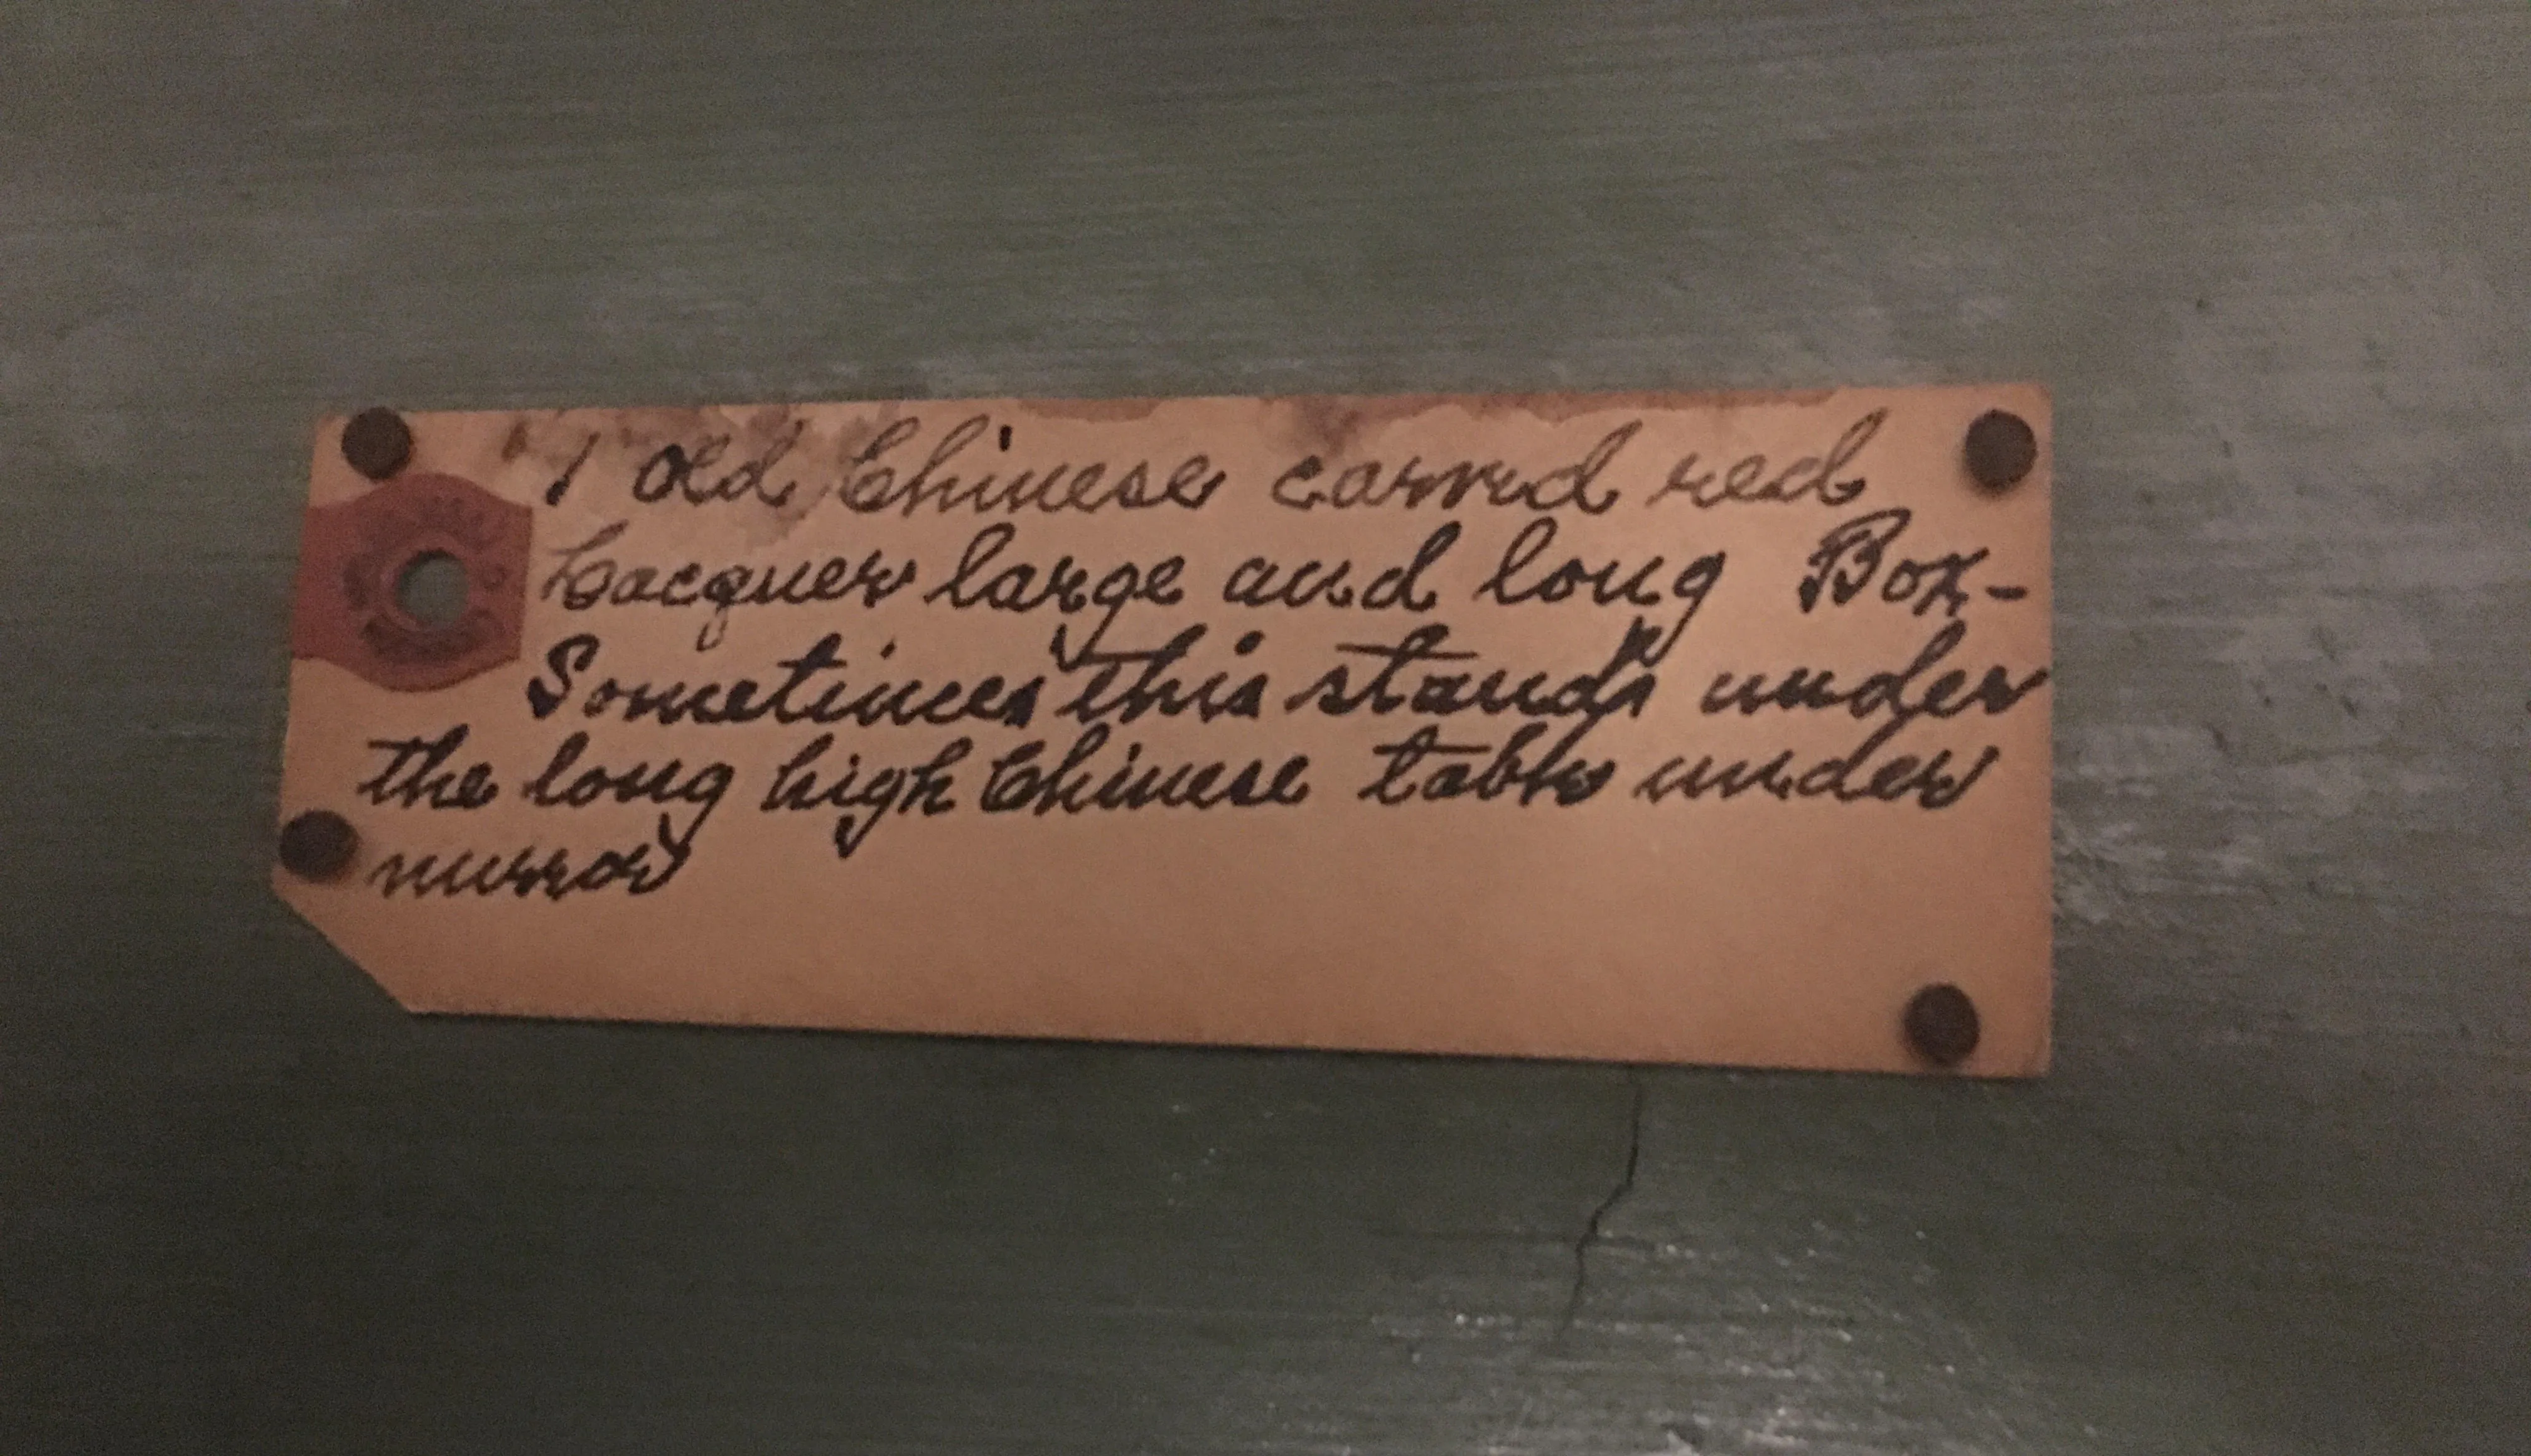 1 old Chinese carved red
Lacquer large and long Box-
Sometimes this stands under
the long high Chinese table under
mirror